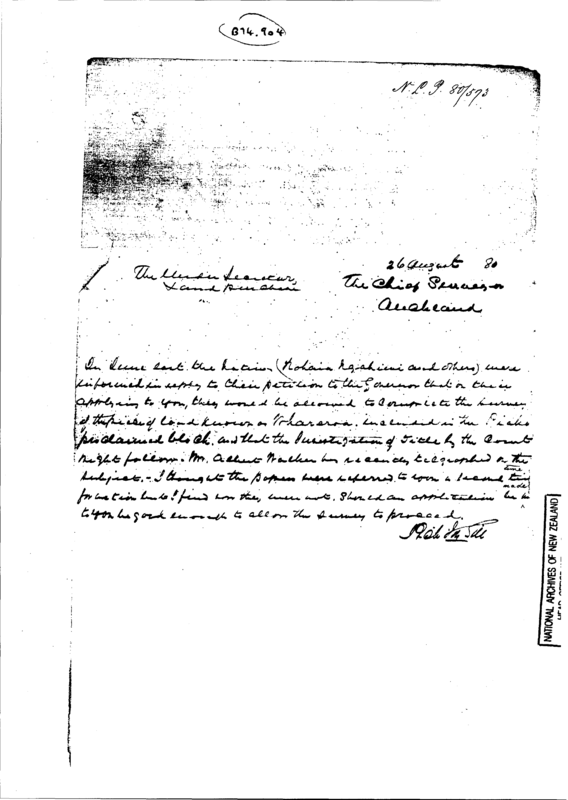 B74.904
N.L.P. 80/593
26 August 80
The Under Secretary
Land Purchase
The Chief Surveyor
Auckland
In June last the Natives (and others) were
informed in reply to their petition to the Governor that on their
applying to you, they would be allowed to complete the survey
of the piece of land known as Whararoa, included in the
proclaimed block, and that the Investigation of Title by the Court
might follow. Mr. Albert Walker has recently telegraphed on the
subject. - I thought the papers were referred to you a second time
for action but I find now they were not. Should an application be made
to you be good enough to allow the survey to proceed.
NATIONAL ARCHIVES OF NEW ZEALAND